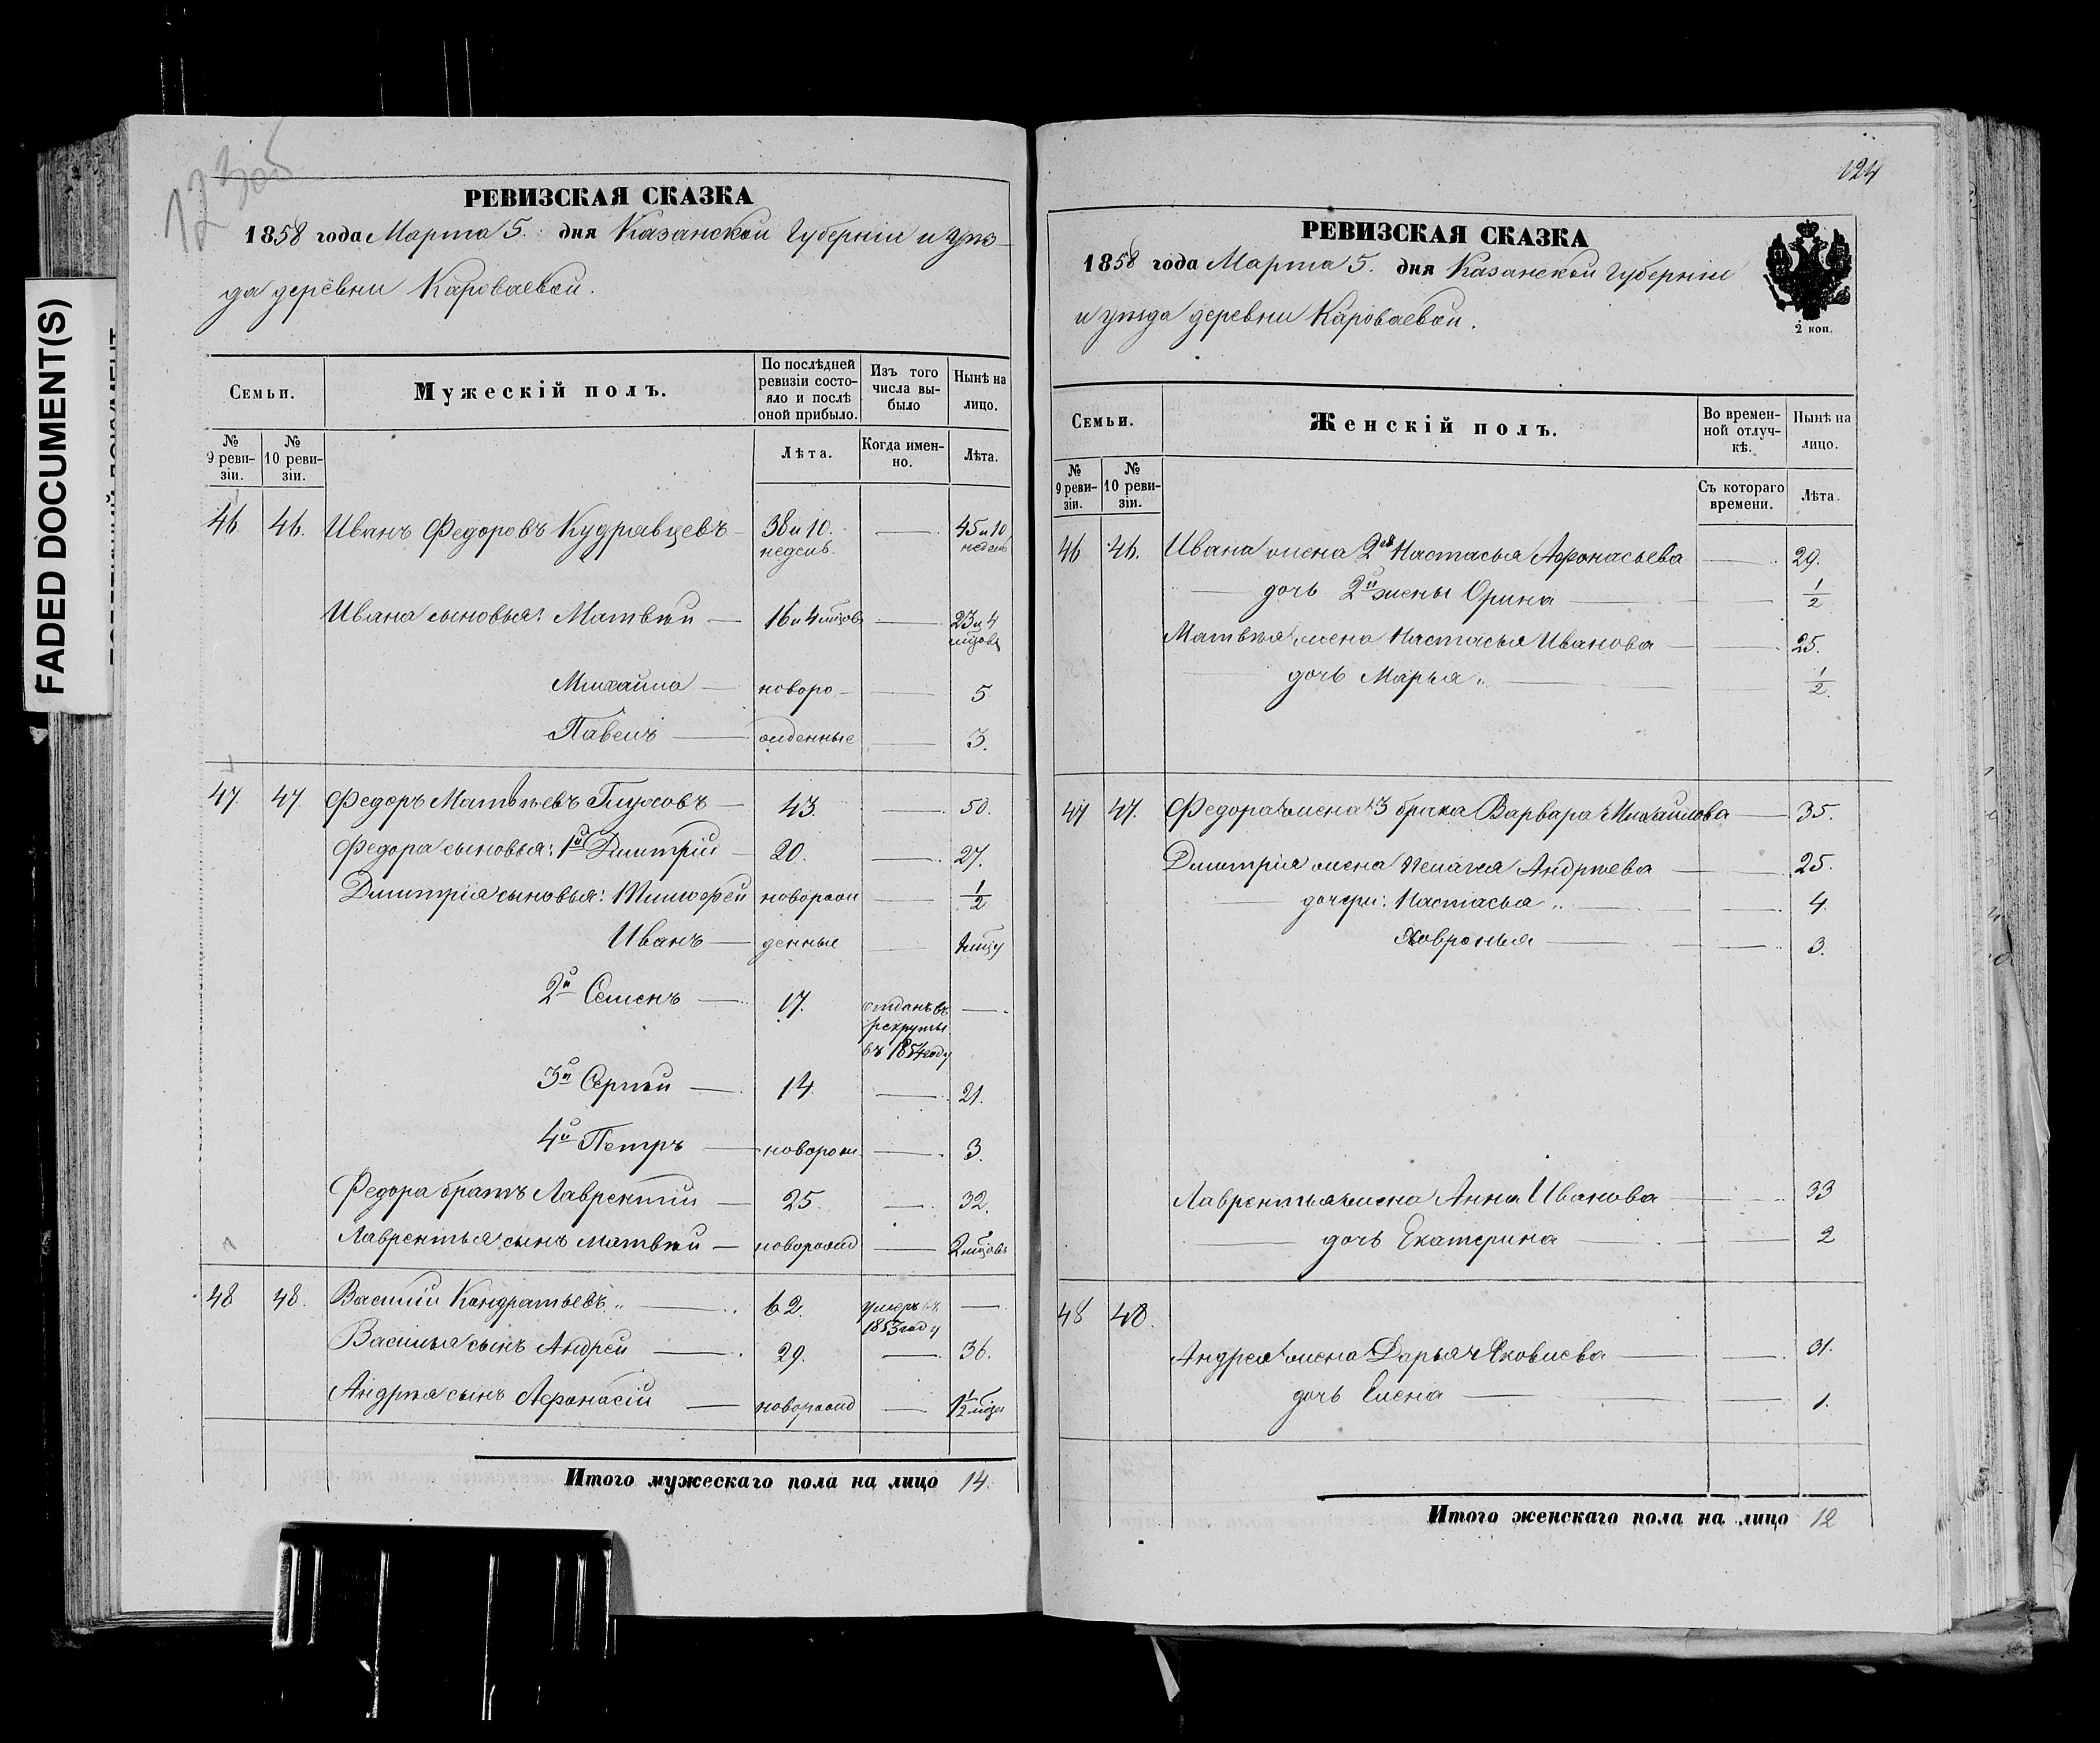 FADED DOCUMENT(S)
РЕВИЗСКАЯ СКАЗКА
1858 года Марта 5. дня Казанской Губерніи и уѣз-
да деревни Кароваевой.
Семьи.
Мужескій полъ.
По послѣдней ревизіи состояло и послѣ оной прибыло.
Изъ того числа выбыло
Нынѣ на лицо.
№ 9 реви-зіи.
№ 10 реви-зіи.
Лѣта.
Когда имен-но.
Лѣта.
46 46. Иванъ Федоровъ Кудрявцевъ — 38 и 10. недель — 45 и 10 недель
Ивана сыновья: Матвѣй — 16 и 4 мцовъ — 23 и 4 мцовъ
Михайло — новоро- — 5
Павелъ — жденные — 3.
47. 47. Федоръ Матвѣевъ Глуховъ — 43. — 50.
Федора сыновья: 1й Дмитрій — 20. — 27.
Дмитрія сыновья: Тимофей новорож — 1/2
Иванъ — денные —
2й Семенъ — 17. отданъ въ рекруты въ 1854 году —
3й Сергѣй — 14. — 21.
4й Петръ — новорож — 3.
Федора братъ Лаврентій — 25. — 32.
Лаврентья сынъ Матвѣй — новорожд — 2 мцовъ
48 48. Василій Кондратьевъ — 62. умеръ въ 1853 году —
Василья сынъ Андрей — 29. — 36.
Андрѣя сынъ Афонасій — новорожд — 1 1/2 мца
Итого мужескаго пола на лицо 14.
124
РЕВИЗСКАЯ СКАЗКА
1858 года Марта 5. дня Казанской Губерніи
и уѣзда деревни Кароваевой.
2 коп.
Семьи.
Женскій полъ.
Во времен-ной отлуч-кѣ.
Нынѣ на лицо.
№ 9 реви-зіи.
№ 10 реви-зіи.
Съ котораго времени.
Лѣта.
46 46. Ивана жена 2ая Настасья Афонасьева — 29.
дочь 2й жены Орина — 1/2
Матвѣя жена Настасья Иванова — 25.
дочь Марья — 1/2.
47 47. Федора жена 3 брака Варвара Михайлова — 35.
Дмитрія жена Пелагея Андрѣева — 25.
дочери: Настасья — 4.
Ховронья — 3.
Лаврентья жена Анна Иванова — 33
дочь Екатерина — 2
48 48.
Андрея жена Дарья Яковлева — 31.
дочь Елена — 1.
Итого женскаго пола на лицо 12